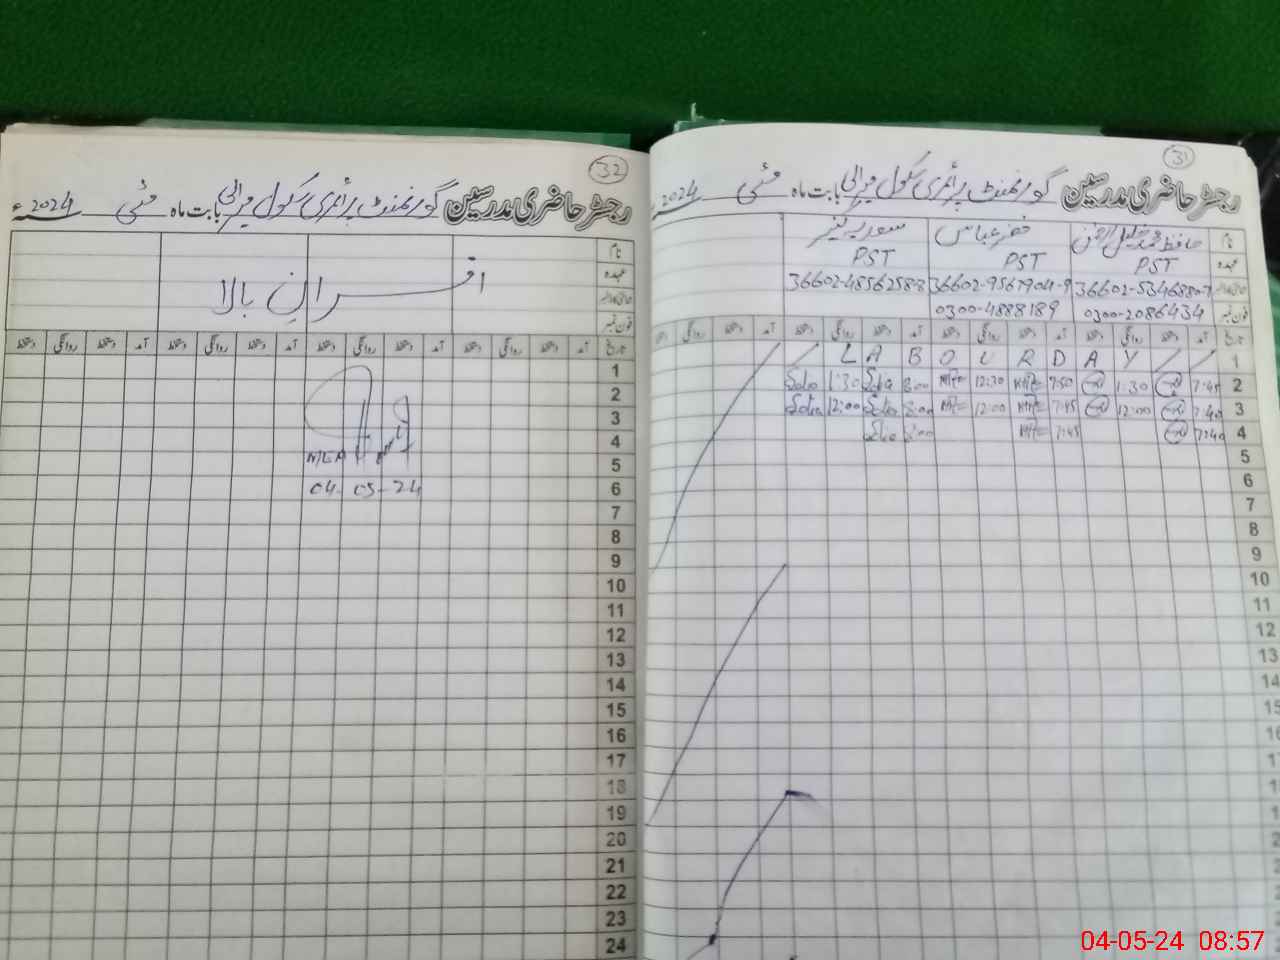 31
رجسٹر حاضری مدرسین گورنمنٹ پرائمری سکول میرالی بابت ماہ مئی 2024ء
نام حافظ محمد خلیل الرحمٰن خضر عباس سعدیہ
عہدہ PST PST PST
36602-5346880-7 36602-9567904-9 36602-4856258-8
فون نمبر 0300-2086434 0300-4888189
تاریخ آمد دستخط روانگی دستخط آمد دستخط روانگی دستخط آمد دستخط روانگی دستخط آمد دستخط روانگی دستخط
1 L A B O U R D A Y
2 7:45 1:30 7:50 12:30 8:00 1:30
3 7:40 12:00 7:45 12:00 8:00 12:00
4 7:40 7:45 8:00
5
6
7
8
9
10
11
12
13
14
15
16
17
18
19
20
21
22
23
24
32
رجسٹر حاضری مدرسین گورنمنٹ پرائمری سکول میرالی بابت ماہ مئی 2024ء
نام
عہدہ
افسرانِ بالا
فون نمبر
تاریخ آمد دستخط روانگی دستخط آمد دستخط روانگی دستخط آمد دستخط روانگی دستخط آمد دستخط روانگی دستخط
1
2
3
4
5 MEA
6 04-05-24
7
8
9
10
11
12
13
14
15
16
17
18
19
20
21
22
23
24
04-05-24 08:57